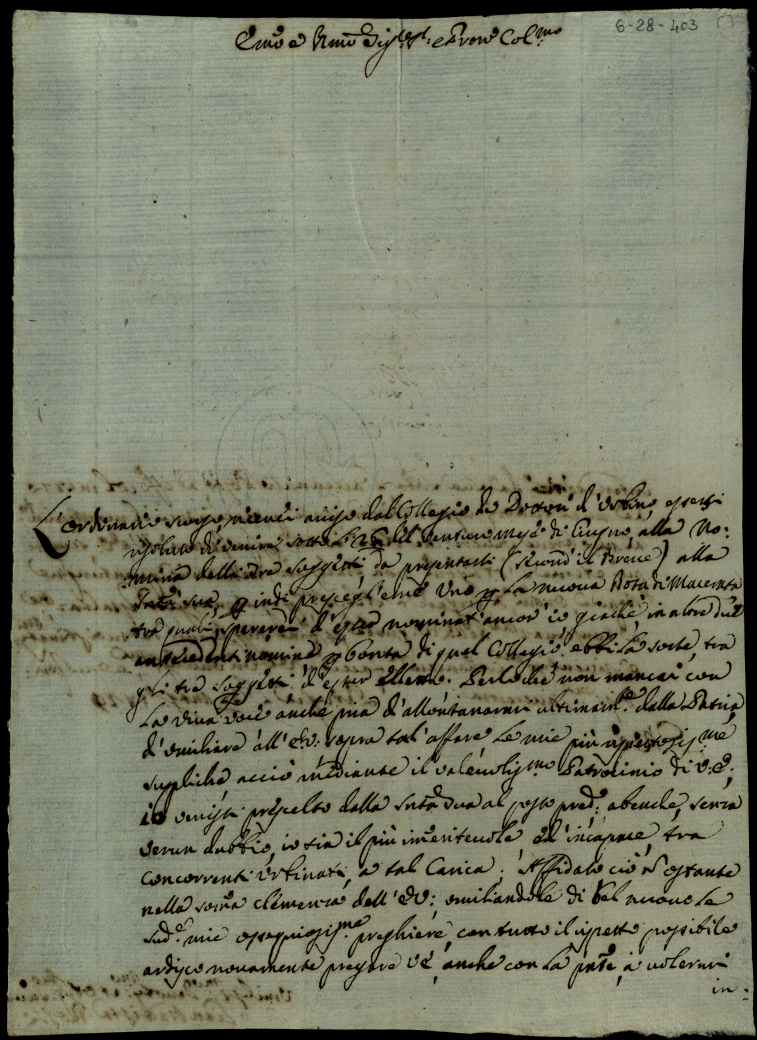 6-28-403
Emo e Rmo Sig.r Sig.r e Pron Col.mo
L'ordinario scorso ricevei aviso dal Collegio de Dottori d'Urbino, essersi
risoluto di venire sotto li 26 del venturo mese di Giugno, alla No:
mina delli tre soggetti da presentarsi (secondo il Breve) alla
Santà Sua, p indi presceglierne Uno p la nuova Rota di Macerata
tra quali, spererei d'esser nominato ancor' io giache in altre due
antecedenti nomine p bontà di quel Collegio ebbi la sorte, tra
gli tre soggetti d'esser eletto. Perloche non mancai con
la viva voce anche pria d'allontanarmi ultimam.te dalla Patria,
d'umiliare all'E.V: sopra tal'affare le mie più rispettosis.me
suppliche acciò mediante il valevolis.mo Patrocinio di V.E:,
io venissi prescelto dalla Santà Sua al posto pred.o: abenche, senza
verun dubbio, io sia il più immeritevole ed' incapace, tra
concorrenti Urbinati, a tal Carica; Affidato ciò n ostante
nella somma clemenza dell'E.V:, umiliandole di bel nuovo le
sud.e mie ossequiosis.me preghiere, con tutto il rispetto possibile
ardisco novamente pregare V.E, anche con la pnte, a volermi
in: